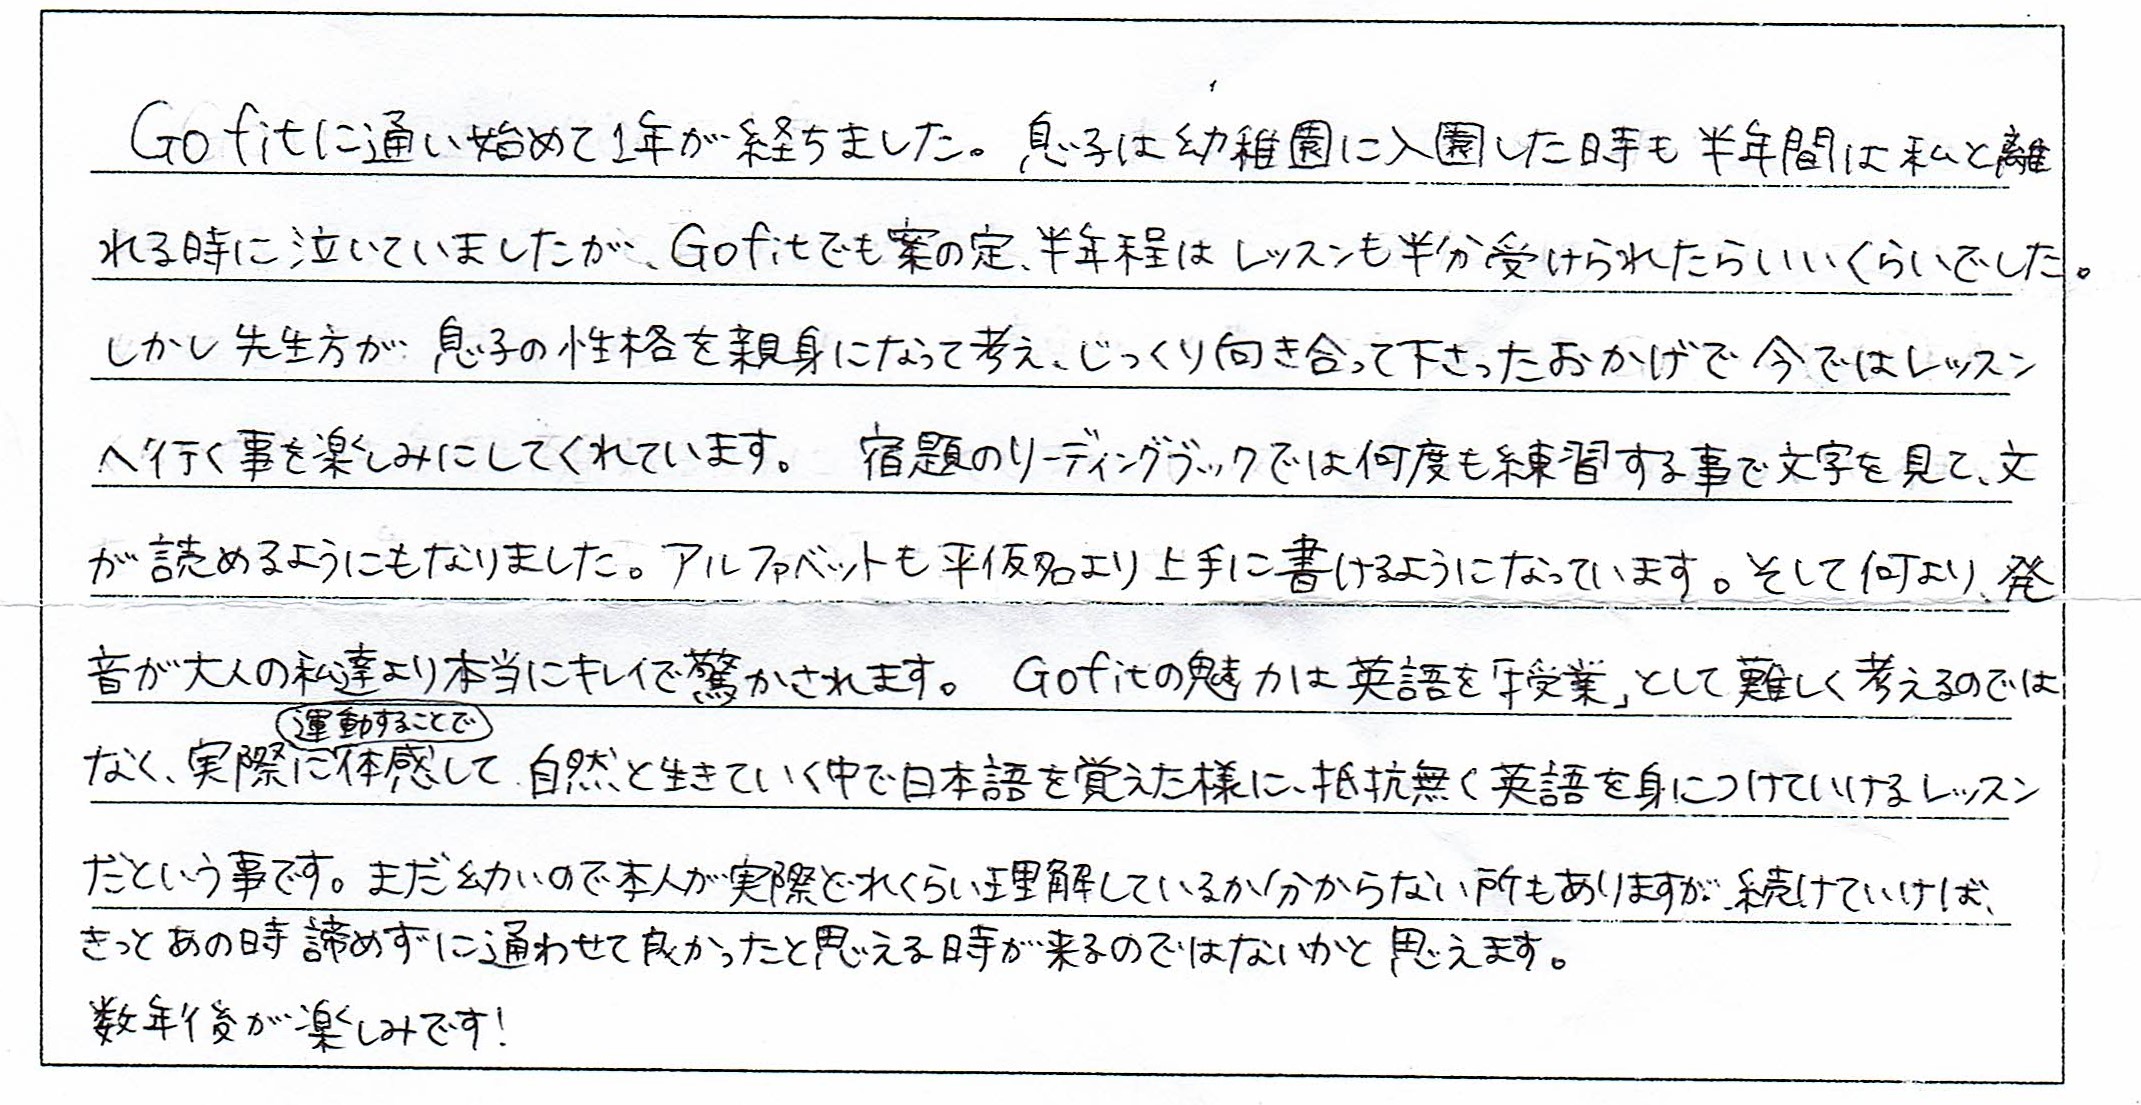 Gofitに通い始めて1年が経ちました。息子は幼稚園に入園した時も半年間は私と離
れる時に泣いていましたが、Gofitでも案の定、半年程はレッスンも半分受けられたらいいくらいでした。
しかし先生方が息子の性格を親身になって考え、じっくり向き合って下さったおかげで今ではレッスン
へ行く事を楽しみにしてくれています。 宿題のリーディングブックでは何度も練習する事で文字を見て、文
が読めるようにもなりました。アルファベットも平仮名より上手に書けるようになっています。そして何より、発
音が大人の私達より本当にキレイで驚かされます。 Gofitの魅力は英語を「授業」として難しく考えるのでは
運動することで
なく、実際に体感して自然と生きていく中で日本語を覚えた様に、抵抗無く英語を身につけていけるレッスン
だという事です。まだ幼いので本人が実際どれくらい理解しているか分からない所もありますが、続けていけば、
きっとあの時諦めずに通わせて良かったと思える時が来るのではないかと思えます。
数年後が楽しみです!